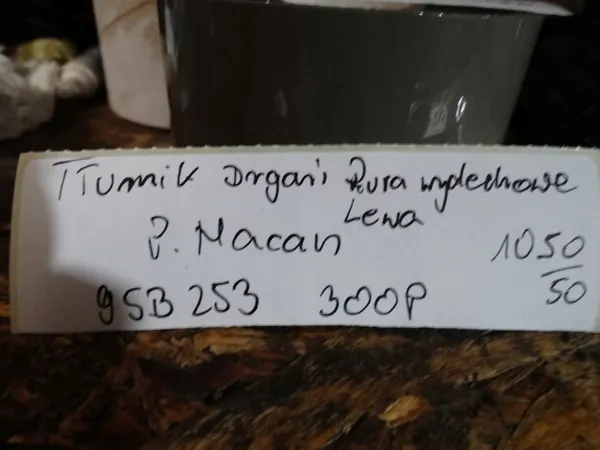 Tłumik Drgań Rura wydechowe
Lewa
P. Macan
1050
95B 253 300P
50